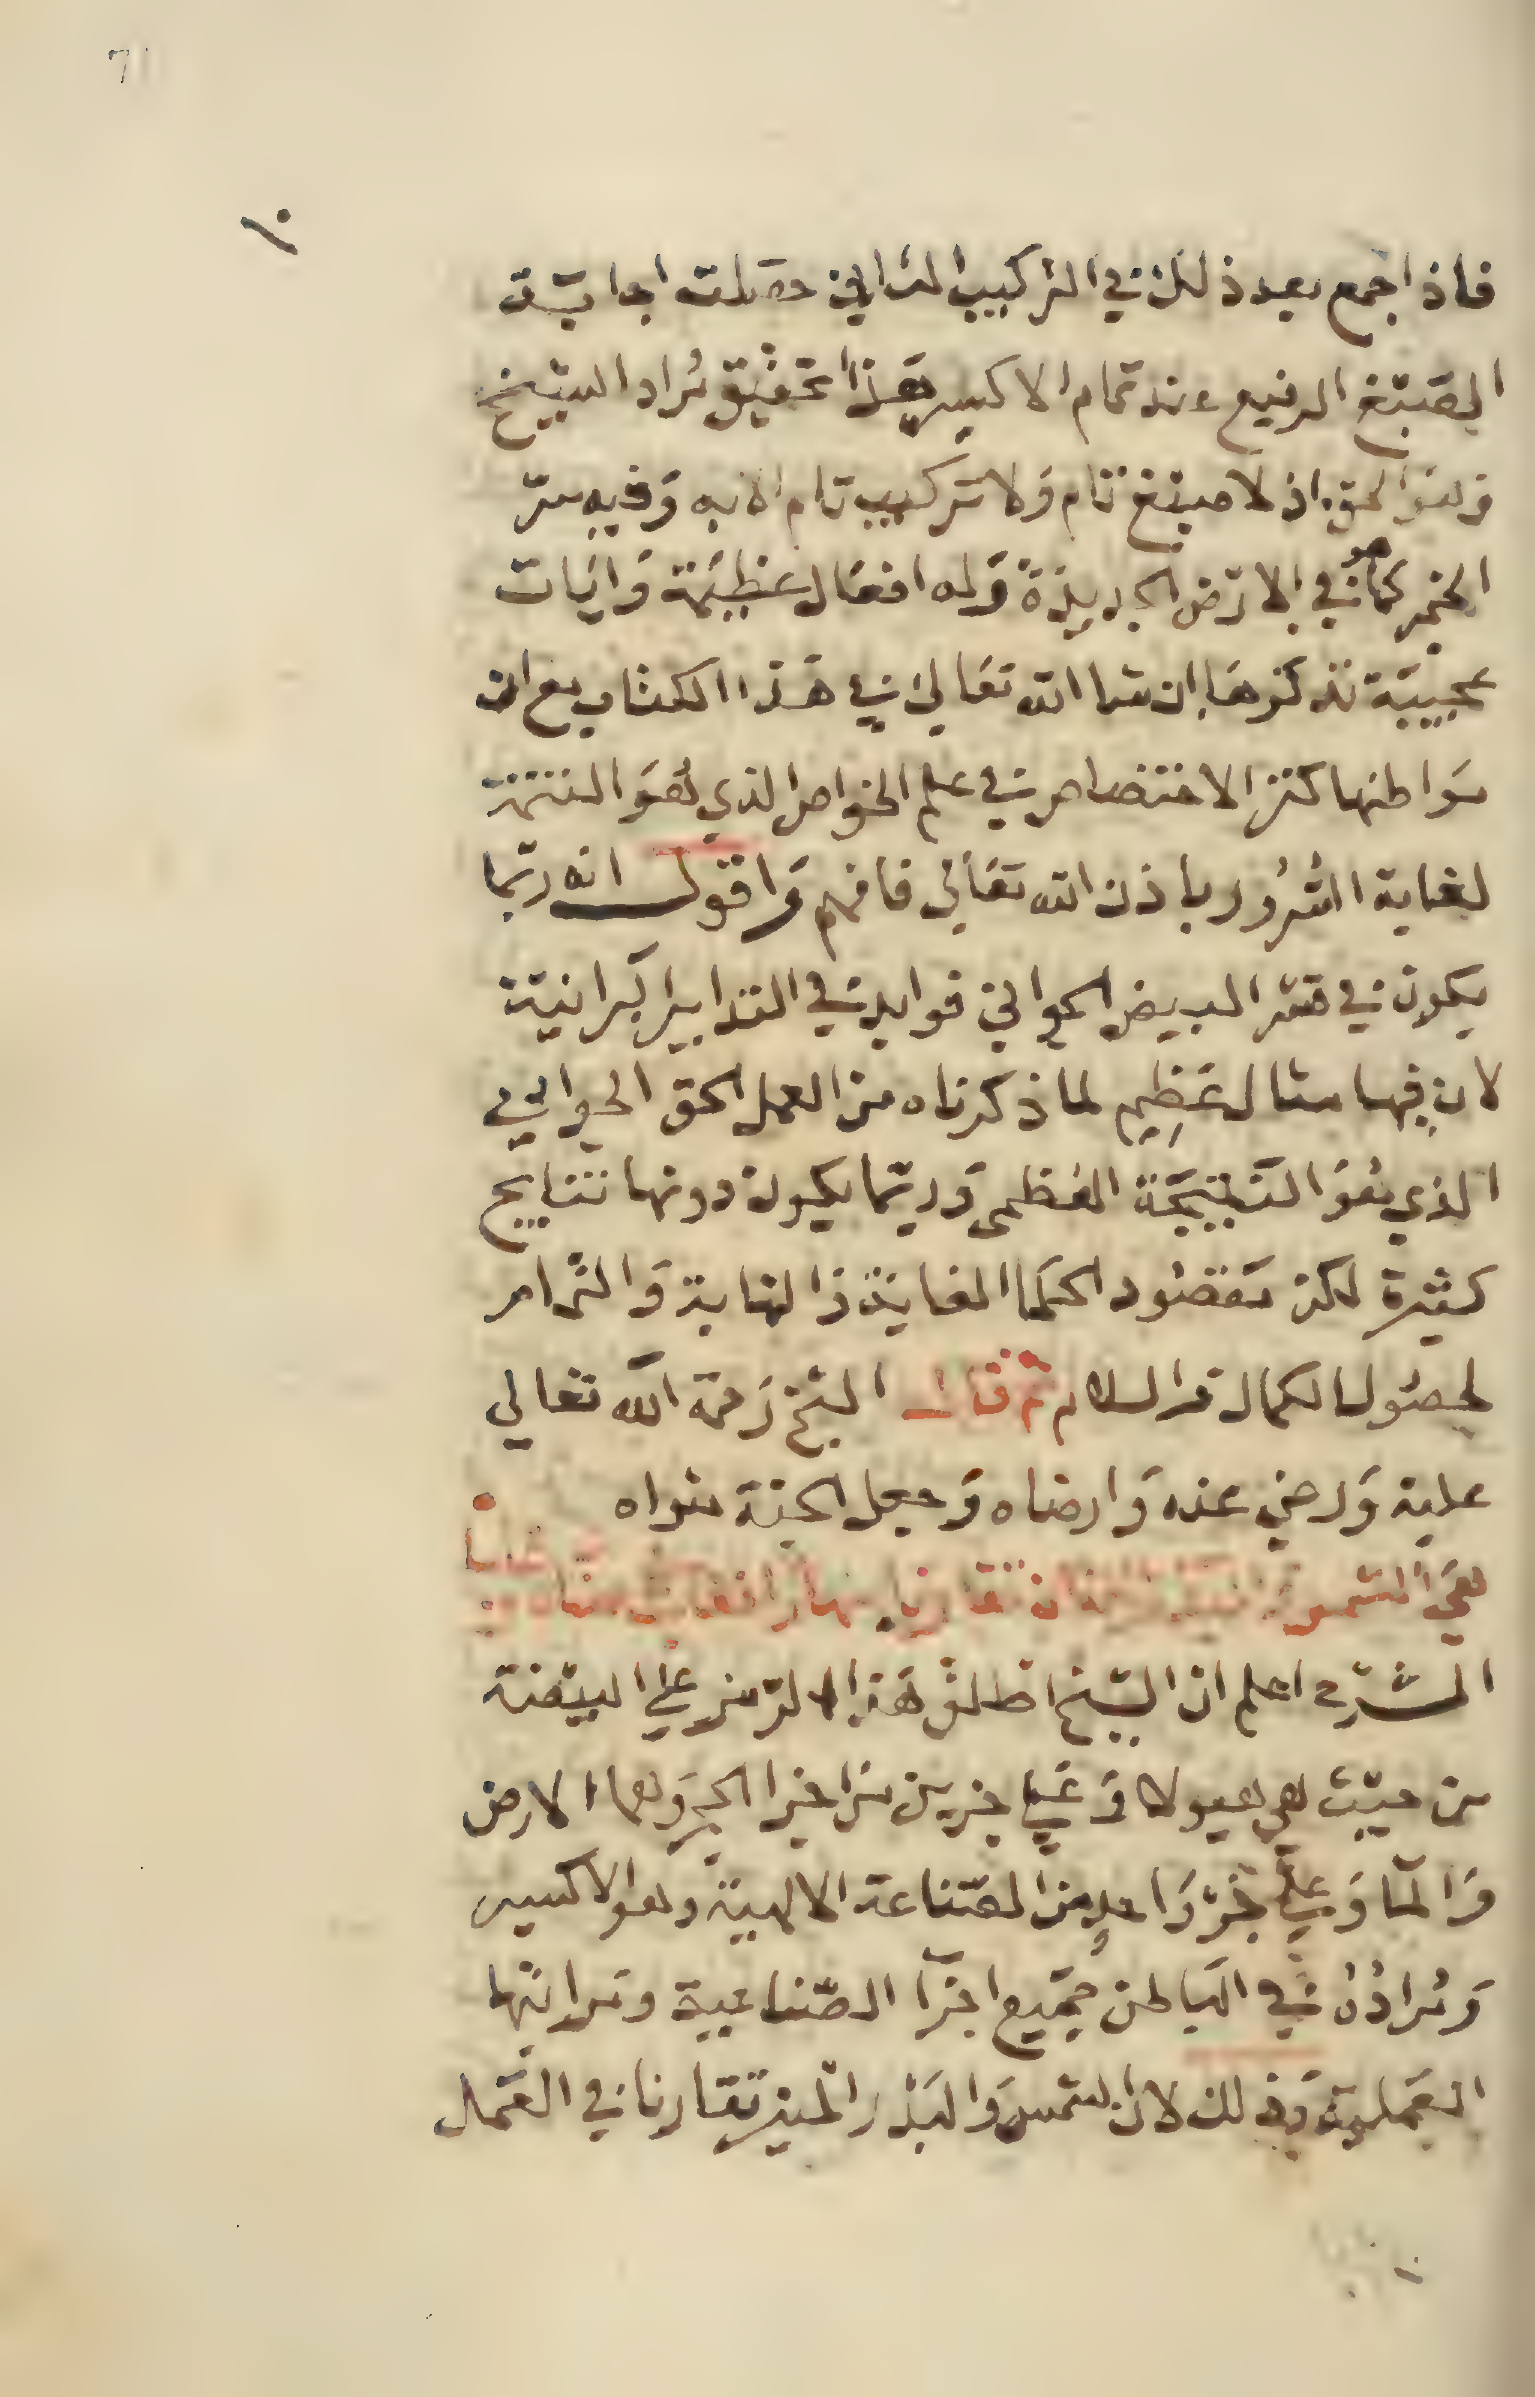 71
فاذا جمع بعد ذلك في التركيب الثاني حصلت اجابته
الصّبغ الرفيع عند تمام الاكسير هَذا تحقيق مُراد الشيخ
وهوَ الحق اذ لا صبغ تام وَلا تركيب تام الا به وَفيه سرّ
الخمر كما هو في الارض الجديدَة وَله افعَال عظيمَة وَايَات
عجيبَة نذكرهَا ان شا الله تعَالي في هَذا الكتاب مع ان
مَواطنها كنز الاختصاص في علم الخواص الذي هُوَ التتمة
لغاية السُرُور باذن الله تعَالي فافهم وَاقول انه ربّما
يكون في قشر البيض الحيواني فوايد في التدابير البرانيّة
لان فيها مثال عَظِيم لما ذكرناه من العمل الحق الحيواني
الذي هُوَ النّتيجَة العُظمى وَربّما يكون دونها نتايج
كثيرة لكن مَقصُود الحكما الغايَة ذا النهاية وَالثمرا مر
لحصُول الكمال وَالسلام ثم قال الشيخ رَحمة الله تعَالي
عليه وَرضي عنه وَارضاه وَجعل الجنة مثواه
هيَ الشمس
الشرح اعلم ان الشيخ اطلق هَذا الرّمز علي البيضة
من حيث هي هيولا وَعَلي جزين من اجزا الحجر وَهما الارض
وَالمآ وَعلي جزْ وَاحدٍ من الصّناعة الالهية وهو الاكسير
وَمُرادُهُ في البَاطن جميَع اجزآ الصّناعية ومَراتبها
العَمليّة وَذلك لان الشمسَ وَالبَدْر المنير تقارنا في العَمَل